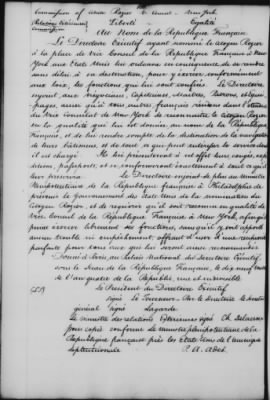 Commission of Citizen Rozier as Consul — New York
Relations Extérieures Liberté Egalité
Au Nom de la République Française
Le Directoire Exécutif ayant nommé le citoyen Rozier
à la place de Vice Consul de la République Française à New
York aux Etats Unis lui ordonne en conséquence de se rendre
sans délai à sa destination, pour y exercer, conformément
aux lois, les fonctions qui lui sont confiées. Le Directoire
enjoint aux négociants, Capitaines, Maîtres, Patrons, équi-
pages, ainsi qu'à tous autres français résidans dans l'étendue
du Vice Consulat de New York de reconnaître le Citoyen Rozier
en la qualité qui lui est donnée, au nom de la République
Française, et de lui rendre compte de la destination de la navigation
de leurs bâtimens, et de tout ce qui peut intéresser le service dont
il est chargé. Ils lui présenteront à cet effet leurs congés, expé-
ditions, passeports, et se conformeront exactement à tout ce qu'il
leur prescrira.
Le Directoire enjoint de plus au ministre
Plénipotentiaire de la République française à Philadelphie de
prévenir le Gouvernement des Etats Unis de la nomination du
Citoyen Rozier, et de requérir qu'il soit reconnu en qualité de
Vice Consul de la République Française à New York, afin qu'il
puisse exercer librement ses fonctions, sans qu'il y soit apporté
aucun trouble ni empêchement, offrant d'user d'une réciprocité
parfaite pour tous ceux qui lui seront ainsi recommandés
Donné à Paris, au Palais National du Directoire Exécutif
sous le Sceau de la République Française, le dix neuf
de l'an quatre de la République, une et indivisible
Le Président du Directoire Exécutif
signé Le Tourneur Par le directoire le Secrétaire
général signé Lagarde
Le ministre des relations Extérieures signé Ch. Delacroix
pour copie conforme Le ministre plénipotentiaire de la
République française près les Etats Unis de l'amérique
Septentrionale P. A. Adet